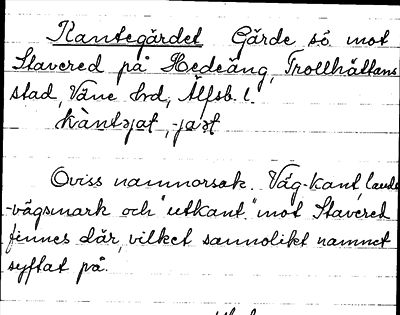 Kantegärdet Gärde sö mot
Stavered på Hedeäng, Trollhättans
stad, Väne hrd, Älfsb. l.
kàntəjat, -jaət
Oviss namnorsak. Väg-kant, lands
-vägsmark och "utkant" mot Stavered
finnes där, vilket sannolikt namnet
syftat på.